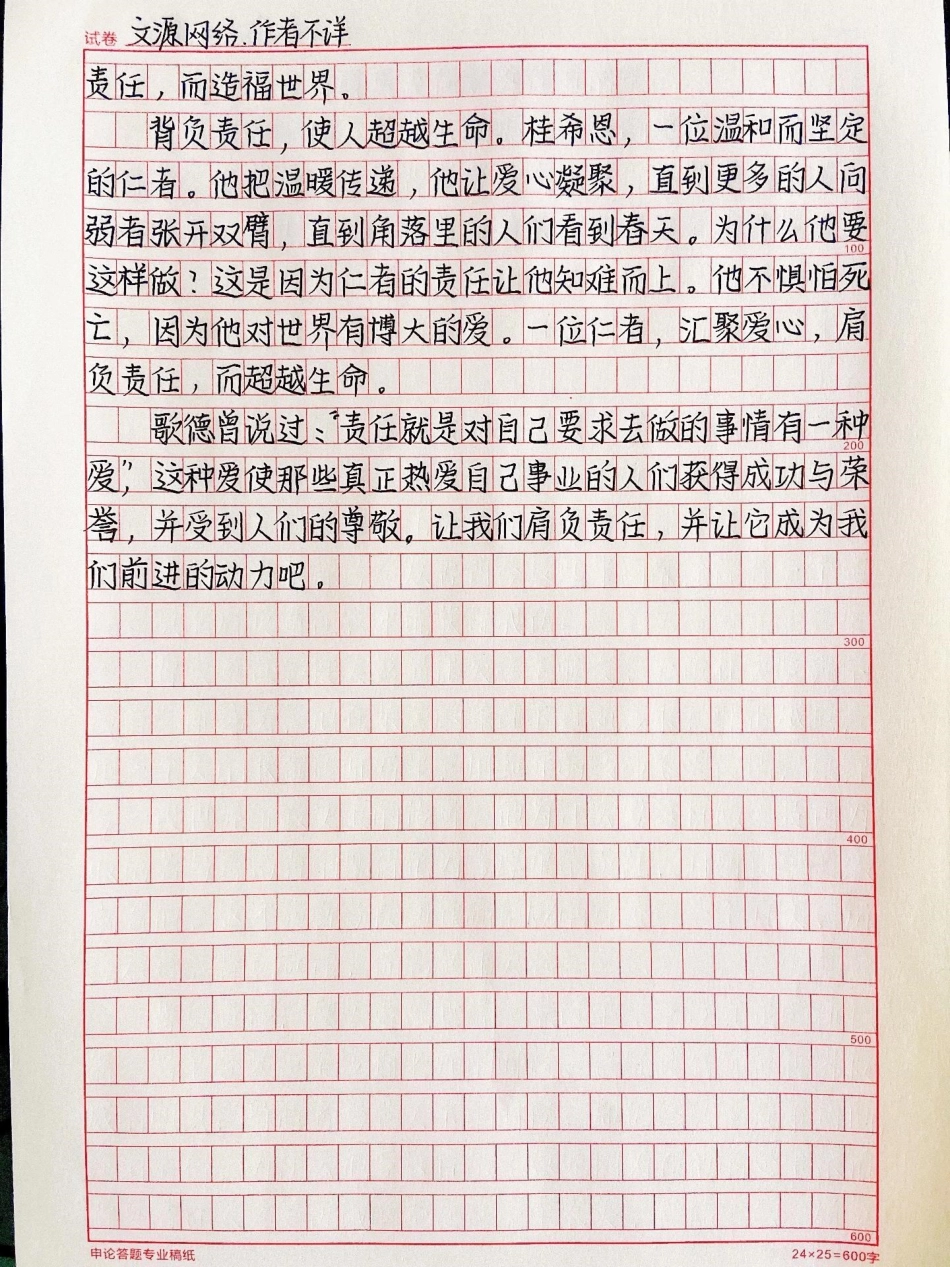 试卷 文源网络.作者不详
责任，而造福世界。
背负责任，使人超越生命。桂希恩，一位温和而坚定
的仁者。他把温暖传递，他让爱心凝聚，直到更多的人向
弱者张开双臂，直到角落里的人们看到春天。为什么他要
100
这样做？这是因为仁者的责任让他知难而上。他不惧怕死
亡，因为他对世界有博大的爱。一位仁者，汇聚爱心，肩
负责任，而超越生命。
歌德曾说过：“责任就是对自己要求去做的事情有一种
200
爱”，这种爱使那些真正热爱自己事业的人们获得成功与荣
誉，并受到人们的尊敬。让我们肩负责任，并让它成为我
们前进的动力吧。
300
400
500
600
申论答题专业稿纸 24×25=600字